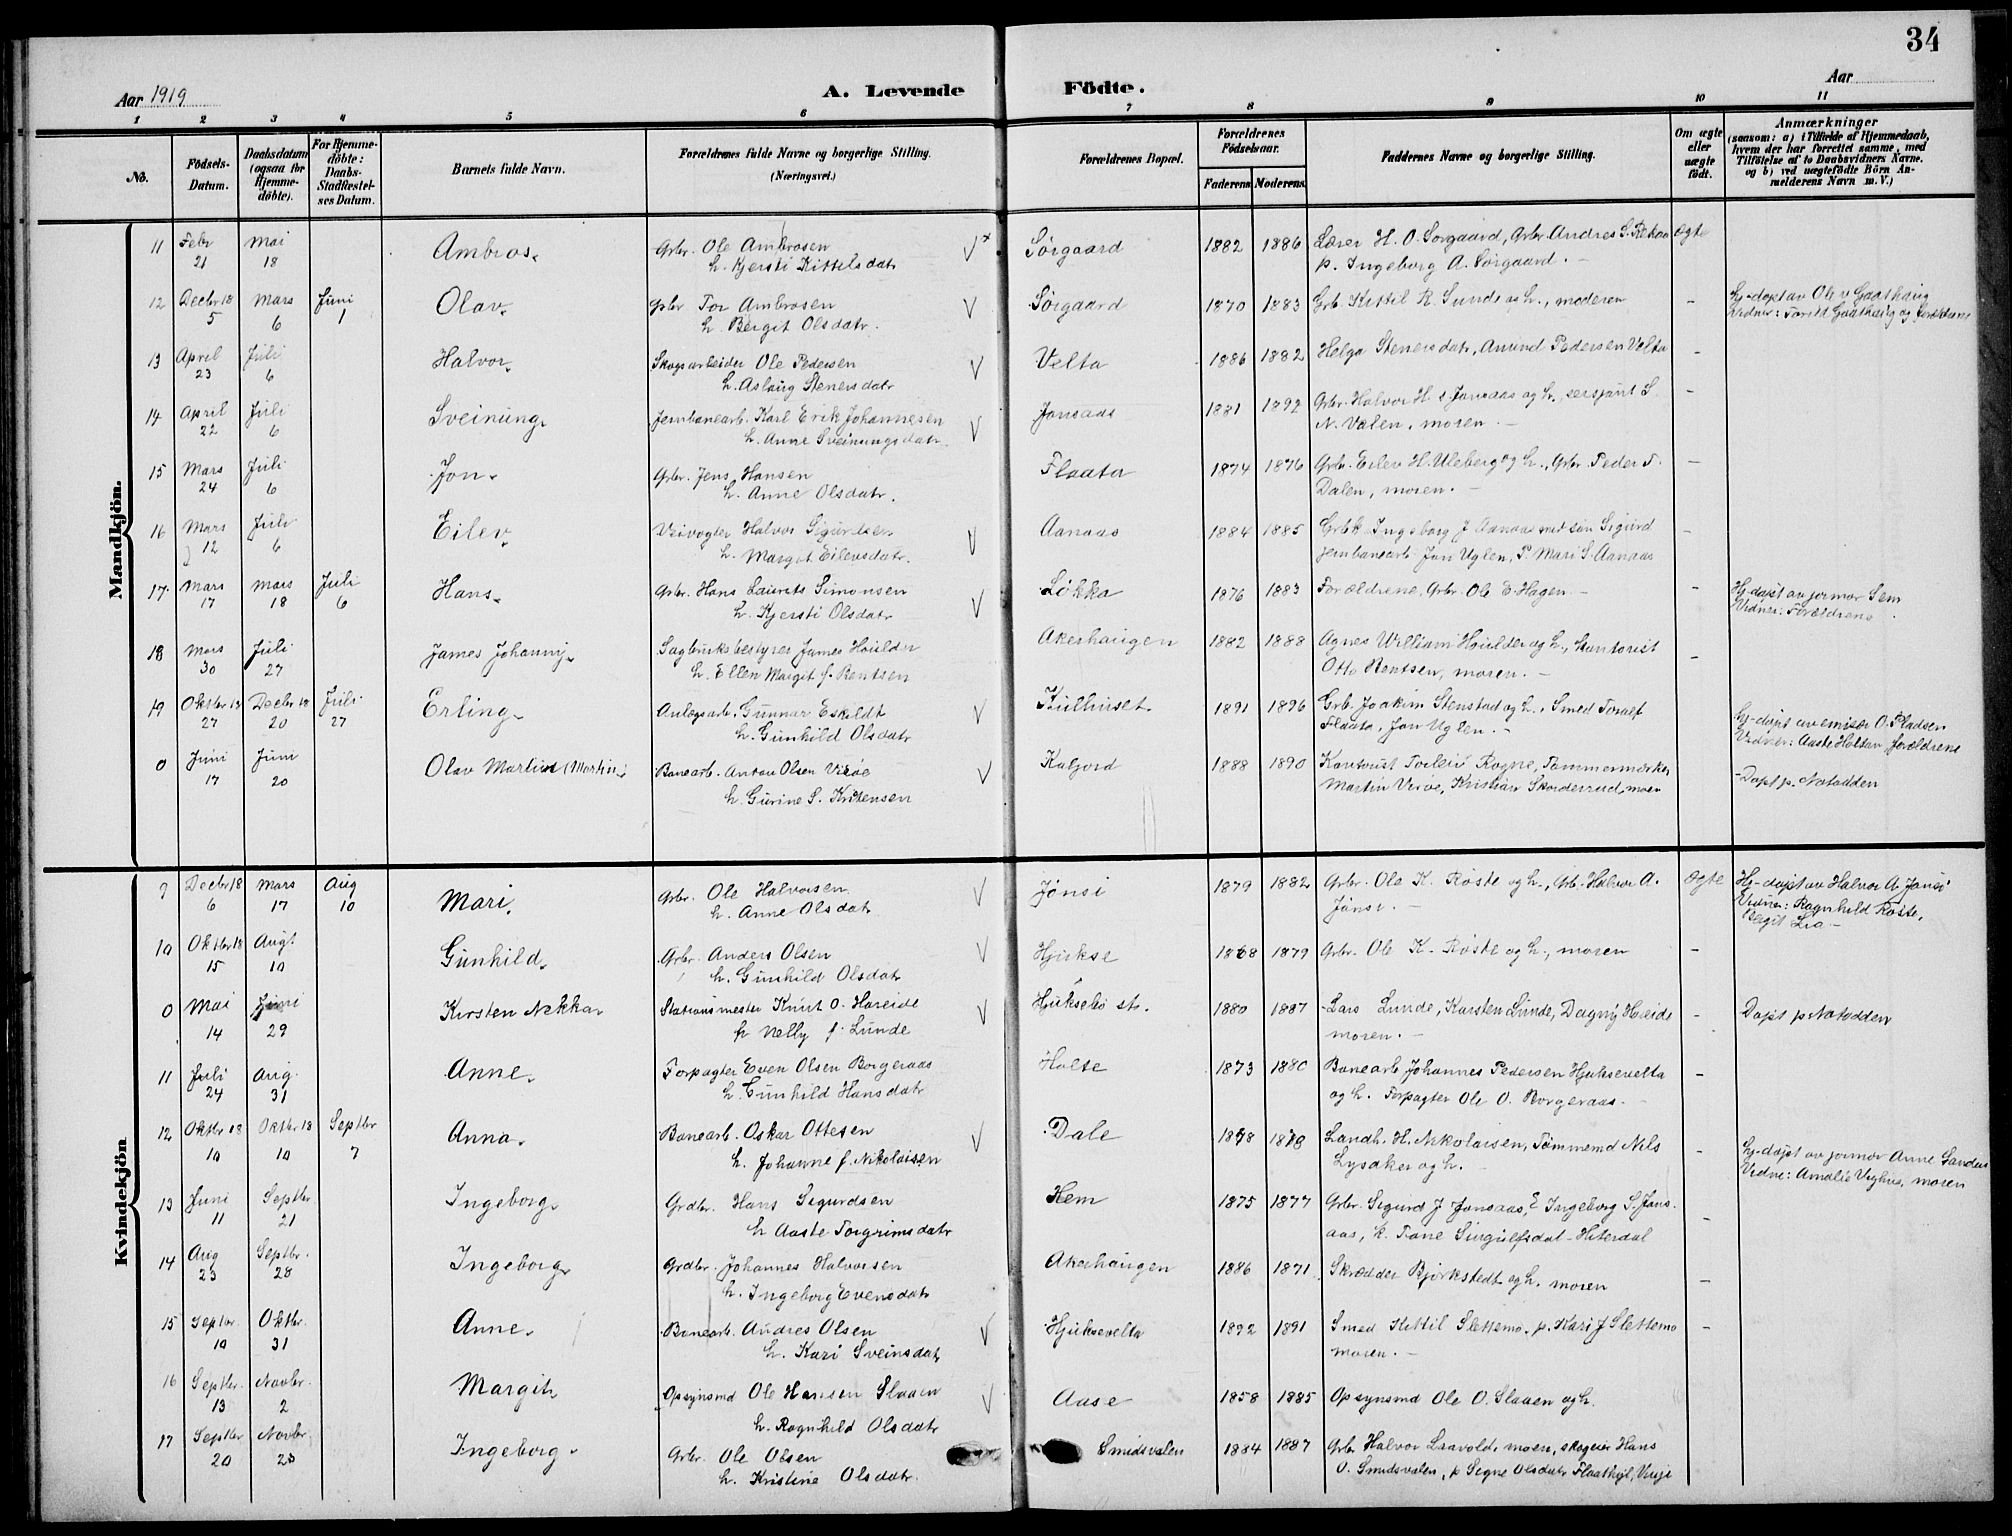 34
Aar 1919
A. Levende Födte.
Aar
1 2 3 4 5 6 7 8 9 10 11
No.
Födsels-Datum.
Daabsdatum (ogsaa for Hjemme-döbte).
For Hjemme-döbte: Daabs-Stadfæstel-ses Datum.
Barnets fulde Navn.
Forældrenes fulde Navne og borgerlige Stilling.
(Næringsvei.)
Forældrenes Bopæl.
Forældrenes Födselsaar.
Faderens Moderens
Faddernes Navne og borgerlige Stilling.
Om ægte eller uægte födt.
Anmærkninger
(saasom: a) i Tilfælde af Hjemmedaab, hvem der har forrettet samme, med Tilföielse af to Daabsvidners Navne. og b) ved uægtefödte Börn An-melderens Navn m. V.)
Mandkjön.
11 Febr 21 Mai 18 Ambros. Grbr. Ole Ambrosen h. Kjersti Kittelsdatr Sørgaard 1882 1886 Lærer H. O. Sørgaard, Grbr Andres S. p. Ingeborg A. Sørgaard. Ægte
12 Decbr 18 5 Mars 6 Juni 1 Olav. Grbr Tor Ambrosen h. Bergit Olsdatr. Sørgaard 1870 1883 Grb. Kittil R. Sunde og h., moderen Hj-døpt av Ole Gaathaug Vidner: Gaathaug og
13 April 23 Juli 6 Halvor. Skogsarbeider Ole Pedersen h. Aslaug Stenersdatr Velta 1886 1882 Helga Stenersdatr, Amund Pedersen Velta
14 April 22 Juli 6 Sveinung. Jernbanearb. Karl Erik Johannesen h. Anne Sveinungsdatr. Jonsaas 1881 1892 Grbr. Halvor H. Jonsaas og h., sersjant S. N. Valen, moren.
15 Mars 24 Juli 6 Jon. Grbr. Jens Hansen h. Anne Olsdatr. Flaata 1874 1876 Grbr. Eilev H. Uleberg og h., Grbr. Peder T. Dalen, moren.
16 Mars 12 Juli 6 Eilev. Veivogter Halvor Sigurdsen h. Margit Eilevsdatr. Aanaas 1884 1885 Ingeborg J Aanaas med søn Sigurd jernbanearb. Jon Uglen, P. Mari S. Aanaas
17 Mars 17 Mars 18 Juli 6 Hans. Grbr. Hans Laurits Simonsen h. Kjersti Olsdatr Løkka 1876 1883 Forældrene, Grbr. Ole E. Hagen. Hj-døpt av jormor Sem Vidner: Forældrene.
18 Mars 30 Juli 27 James Johanny. Sagbruksbestyrer James Houlder h. Ellen Margit f. Bentsen Akerhaugen 1882 1888 Agnes William Houlder og h., Kontorist Otto Bentsen, moren.
19 Oktbr 18 27 Decbr 18 20 Juli 27 Erling. Anlægsarb. Gunnar Eskildt h. Gunhild Olsdatr 1891 1896 Grb. Joakim Stenstad og h., Smed Toralf Flaata, Jon Uglen. Hj-døpt av emisær O. Pladsen Vidner: Aaste Holtan forældrene
0 Juni 17 Juni 20 Olav Martin (Martin) Banearb. Anton Olsen Virøe h. Gurine S. Kristensen Kasjord 1888 1890 Kontorist Torleiv Rogne, Tømmermærker Martin Virøe, Kristian Skorderud, moren Døpt p. Notodden
Kvindekjön
9 Decbr 18 6 Mars 17 Aug 10 Mari. Grbr. Ole Halvorsen h. Anne Olsdatr Jønsi 1879 1882 Grbr. Ole K. Røste og h., Grb. Halvor A. Jønsi. Ægte Hj-døpt av Halvor A. Jønsi Vidner: Ragnhild Røste, Bergit Lia
10 Oktbr 18 15 Augt 10 Gunhild. Grbr. Anders Olsen h. Gunhild Olsdatr Hjukse 1868 1879 Grbr. Ole K. Røste og h., moren
0 Mai 14 Juni 29 Kirsten Nekka Stationsmester Knut O. Hareide h Nelly f. Lunde Hjuksebø st. 1880 1887 Lars Lunde, Karsten Lunde, Dagny Hareide moren. Døpt p Notodden
11 Juli 24 Aug. 31 Anne. Forpagter Even Olsen Borgeraas h. Gunhild Hansdatr Holte 1873 1880 Banearb Johannes Pedersen Hjuksevelta og h. Forpagter Ole O. Borgeraas.
12 Oktbr 18 10 Oktbr 18 10 Septbr 7 Anna. Banearb. Oskar Ottesen h. Johanne f. Nikolaisen Dale 1878 1878 Landh. H. Nikolaisen, Tømmermd Nils Lysaker og h. Hj-døpt av jormor Anne Vidne: Amalie, moren
13 Juni 11 Septbr 21 Ingeborg. Grdbr. Hans Sigurdsen h Aaste Torgrimsdatr Hem 1875 1877 Grbr. Sigurd J Jonsaas, E Ingeborg S. Jonsaas, k. Tone Singulfsdal - Hiterdal
14 Aug 23 Septbr. 28 Ingeborg. Grdbr. Johannes Halvorsen h. Ingeborg Evensdatr Akerhaugen 1886 1871 Skrædder Bjørkstedt og h. moren
15 Septbr. 10 Oktbr. 31 Anne. Banearb. Andres Olsen h. Kari Sveinsdatr Hjuksevelta 1892 1891 Smed Kittil Slettemo, p. Kari J Slettemo moren.
16 Septbr. 13 Novbr. 2 Margit Opsynsmd Ole Hansen Slaaen h. Ragnhild Olsdatr Aase 1858 1885 Opsynsmd Ole O. Slaaen og h.
17 Septbr 20 Novbr. 23 Ingeborg. Grbr. Ole Olsen h. Kristine Olsdatr. Smidsvalen 1884 1887 Grbr Halvor Laavold, moren, skogeier Hans O. Smidsvalen, p Signe Olsdatr Flaathyl, Vinje